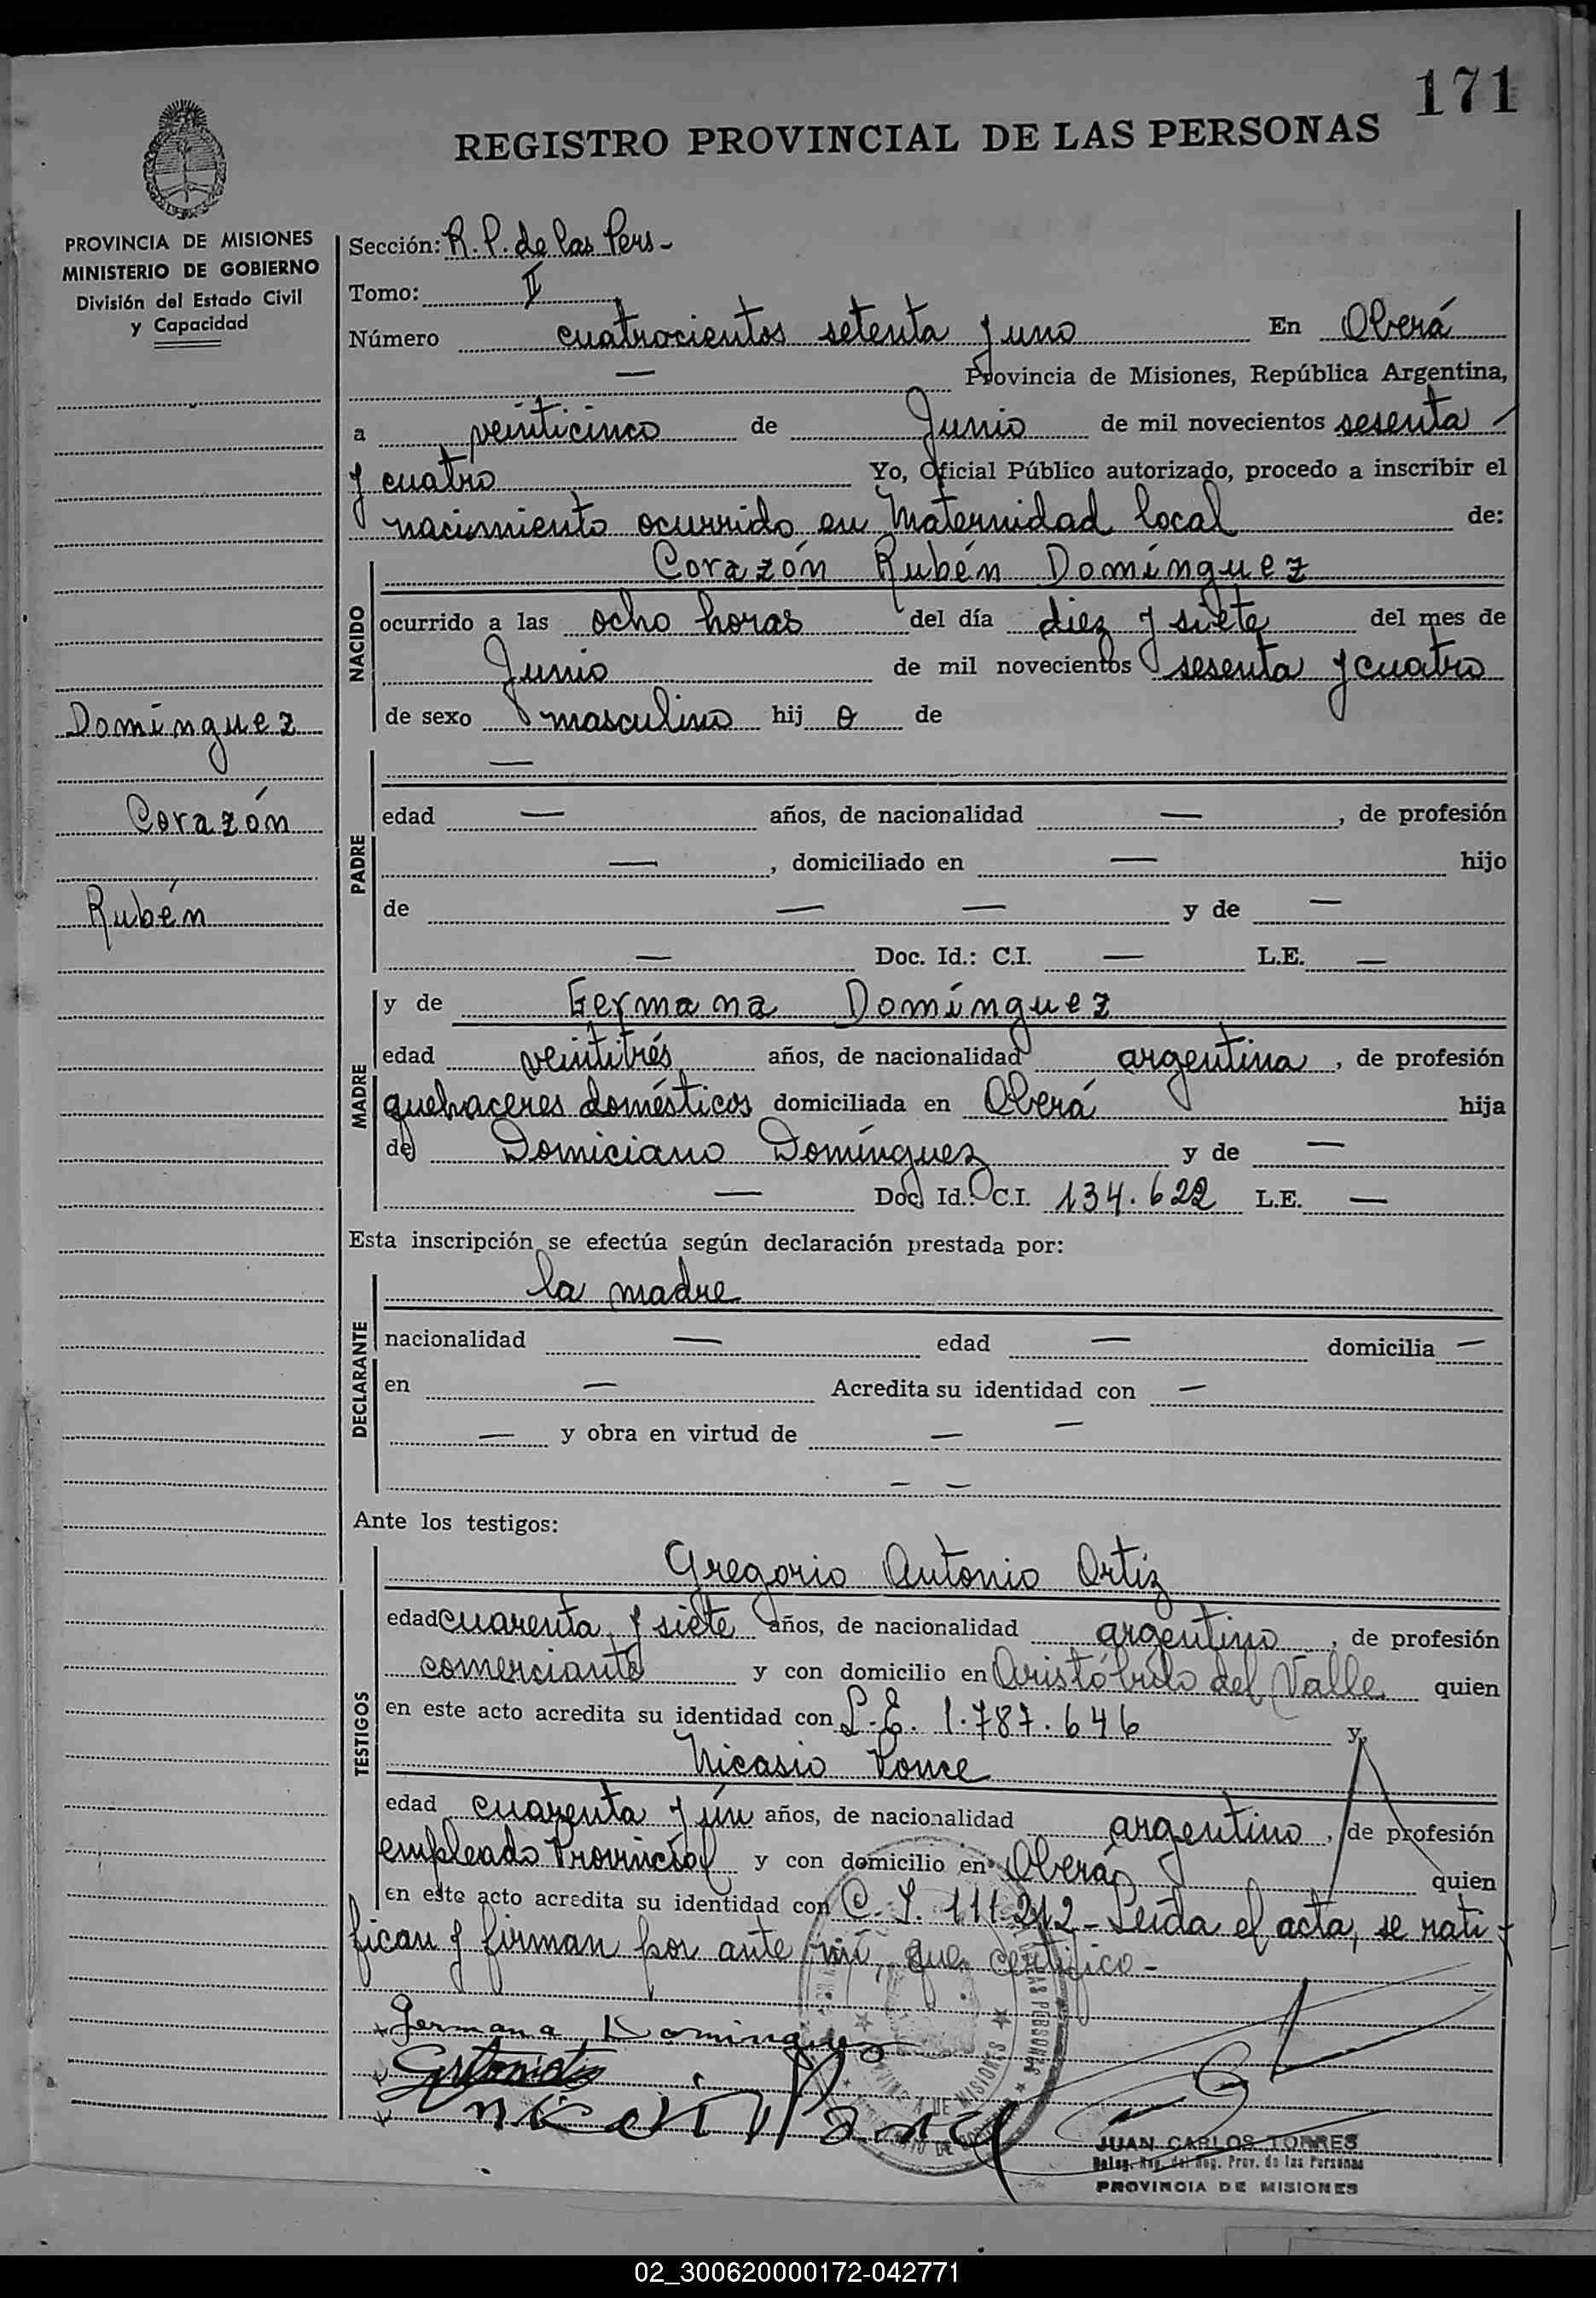 171
REGISTRO PROVINCIAL DE LAS PERSONAS
PROVINCIA DE MISIONES
MINISTERIO DE GOBIERNO
División del Estado Civil
y Capacidad
Domínguez
Corazón
Rubén
Sección: R. P. de las Pers-
Tomo: II
Número cuatrocientos setenta y uno En Oberá
— Provincia de Misiones, República Argentina,
a veinticinco de Junio de mil novecientos sesenta
y cuatro Yo, Oficial Público autorizado, procedo a inscribir el
nacimiento ocurrido en Maternidad local de:
NACIDO
Corazón Rubén Domínguez
ocurrido a las ocho horas del día diez y siete del mes de
Junio de mil novecientos sesenta y cuatro
de sexo masculino hij o de
PADRE
—
edad — años, de nacionalidad —, de profesión
—, domiciliado en — hijo
de — — y de —
— Doc. Id.: C.I. — L.E. —
MADRE
y de Germana Domínguez
edad veintitrés años, de nacionalidad argentina, de profesión
quehaceres domésticos domiciliada en Oberá hija
de Domiciano Domínguez y de —
— Doc. Id.: C.I. 134.622 L.E. —
Esta inscripción se efectúa según declaración prestada por:
DECLARANTE
la madre
nacionalidad — edad — domicilia —
en — Acredita su identidad con —
— y obra en virtud de — —
— —
Ante los testigos:
TESTIGOS
Gregorio Antonio Ortiz
edad cuarenta y siete años, de nacionalidad argentino, de profesión
comerciante y con domicilio en Aristóbulo del Valle quien
en este acto acredita su identidad con L.E. 1.787.646 y
Nicasio Ponce
edad cuarenta y ún años, de nacionalidad argentino, de profesión
empleado Provincial y con domicilio en Oberá quien
en este acto acredita su identidad con C. I. 111.212- Leída el acta, se rati
fican y firman por ante mí, que certifico-
Germana Dominguez
JUAN CARLOS TORRES
Deleg. Reg. del Reg. Prov. de las Personas
PROVINCIA DE MISIONES
02_300620000172-042771